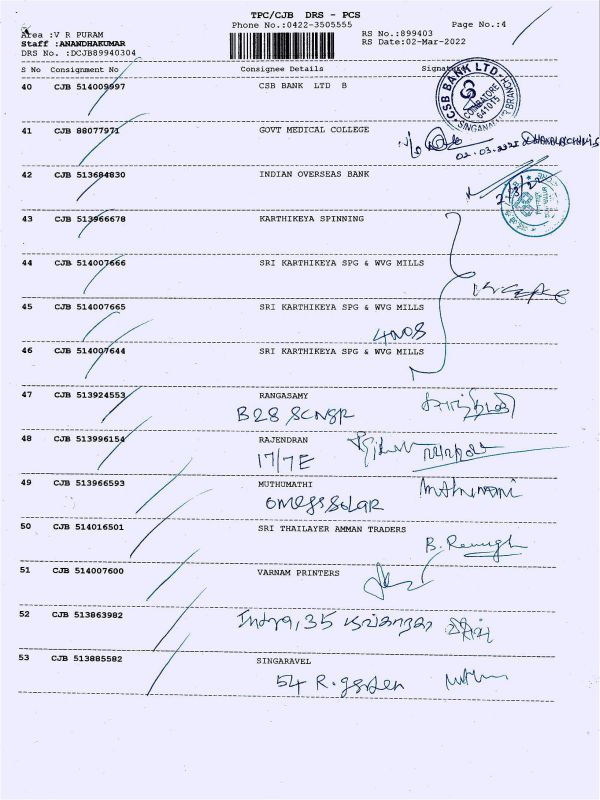 TPC/CJB DRS - PCS
Phone No.:0422-3505555 Page No.:4
Area :V R PURAM RS No.:899403
Staff :ANANDHAKUMAR RS Date:02-Mar-2022
DRS No. :DCJB89940304
S No Consignment No Consignee Details Signature
40 CJB 514009997 CSB BANK LTD B
CSB BANK LTD
COIMBATORE
641015
SINGANALLUR BRANCH
41 CJB 88077971 GOVT MEDICAL COLLEGE
42 CJB 513684830 INDIAN OVERSEAS BANK
43 CJB 513966678 KARTHIKEYA SPINNING
44 CJB 514007666 SRI KARTHIKEYA SPG & WVG MILLS
45 CJB 514007665 SRI KARTHIKEYA SPG & WVG MILLS
4NOS
46 CJB 514007644 SRI KARTHIKEYA SPG & WVG MILLS
47 CJB 513924553 RANGASAMY
B28
48 CJB 513996154 RAJENDRAN
17/7E
49 CJB 513966593 MUTHUMATHI
50 CJB 514016501 SRI THAILAYER AMMAN TRADERS
51 CJB 514007600 VARNAM PRINTERS
52 CJB 513863982
35
53 CJB 513885582 SINGARAVEL
54 R.